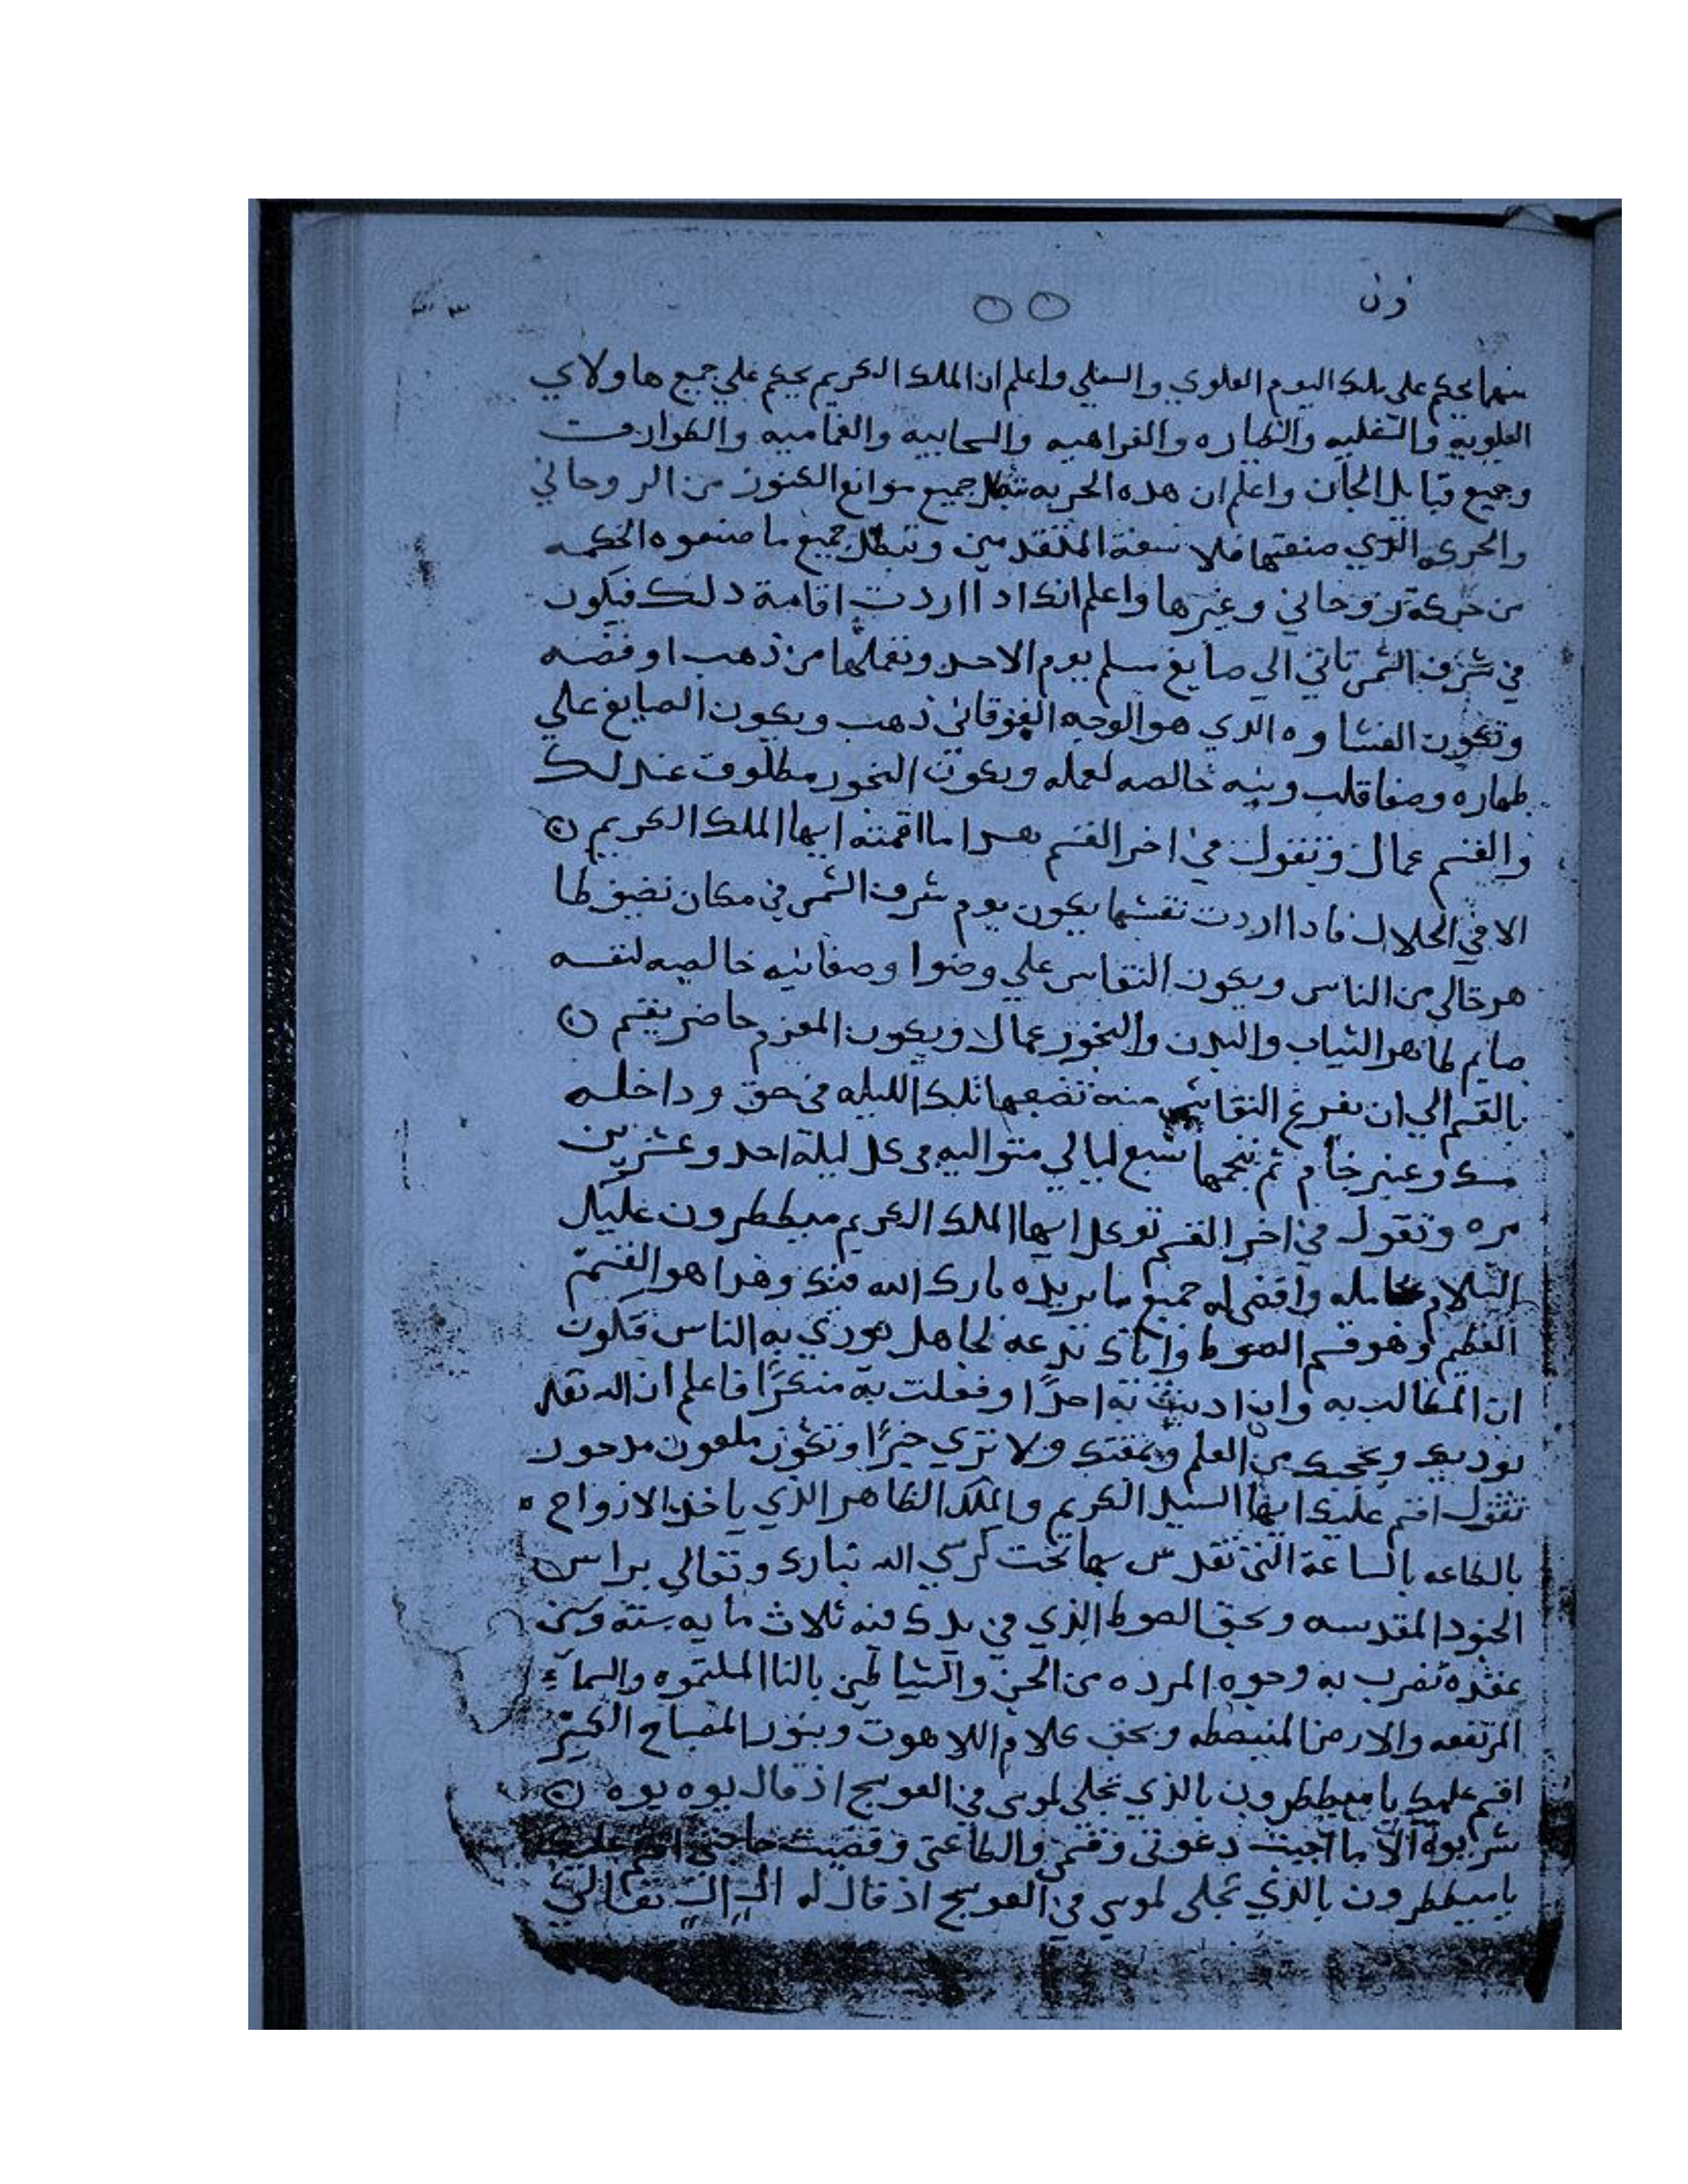 زن
٥٥
٣٣
منهما يحكم علي ملك اليوم العلوي والسفلي واعلم ان الملك الكريم يحكم علي جميع هاولاي
العلويه والسفليه والطياره والقراهيه والسحابيه والغماميه والطوارف
وجميع قبايل الجان واعلم ان هده الحربه تبطل جميع موانع الكنوز من الروحاني
والحركه الذي صنعتها فلاسفة المتقدمين وتبطل جميع ما صنعوه الحكمه
من حركة روحاني وغيرها واعلم انك ادا اردت اقامة دلك فيكون
في شرف الشمس تاتي الي صايغ مسلم يوم الاحد وتعملها من ذهب او فضه
وتكون الغشاوه الدي هو الوجه الفوقاني ذهب ويكون الصايغ علي
طهاره وصفا قلب ونيه خالصه لعمله ويكون البخور مطلوق عند لك
والقسم عمال وتقول في اخر القسم بهدا ما اقمته ايها الملك الكريم ن
الا في الحلال فادا اردت نقشها يكون يوم شرف الشمس في مكان نضيف طا
هر خالي من الناس ويكون النقاس علي وضوا وصفانيه خالصه لنفسه
صايم طاهر الثياب والبدن والبخور عمال ويكون المعزم حاضر يقسم ن
بالقسم الي ان يفرغ النقاش منه تضعها تلك الليله في حق وداخله
مسك وعنبر خام ثم تنجمها سبع ليالي متواليه في كل ليلة احد وعشرين
مره وتقول في اخر القسم توكل ايها الملك الكريم ميططرون عليك
السلام بحامله واقضي له جميع ما يريده بارك الله فيك وهدا هو القسم
العظيم وهو قسم الصوط واياك تدعه لجاهل يودي به الناس فتكون
انت المطالب به وان اديت به احدًا وفعلت به منكرًا فاعلم ان الله تعلى
يوديك ويحجبك من العلم ويمقتك ولا تري خيرًا وتكون ملعون مدحور
تقول اقسم عليك ايها السيد الكريم والملك الطاهر الذي ياخذ الارواح
بالطاعه بالساعة التي تقدس بها تحت كرسي الله تبارك وتعالي براس
الجنود المقدسه وبحق الصوط الذي في يدك فيه ثلاث مايه ستة وستين
عقده تضرب به وجوه المرده من الجن والشياطين بالنا الملتموه والسماء
المرتفعه والارض المنبصطه وبحق كلام اللاهوت وبنور المصباح الكبير
اقسم عليك يا ميططرون بالذي تجلى لموسى في العوسج اذ قال يوه يوه ن
شر يوه الا ما اجبت دعوتى وقسمي والطاعتى وقضيت حاجتي اقسم عليك
يا ميططرون بالذي تجلى لموسي في العوسج اذ قال له